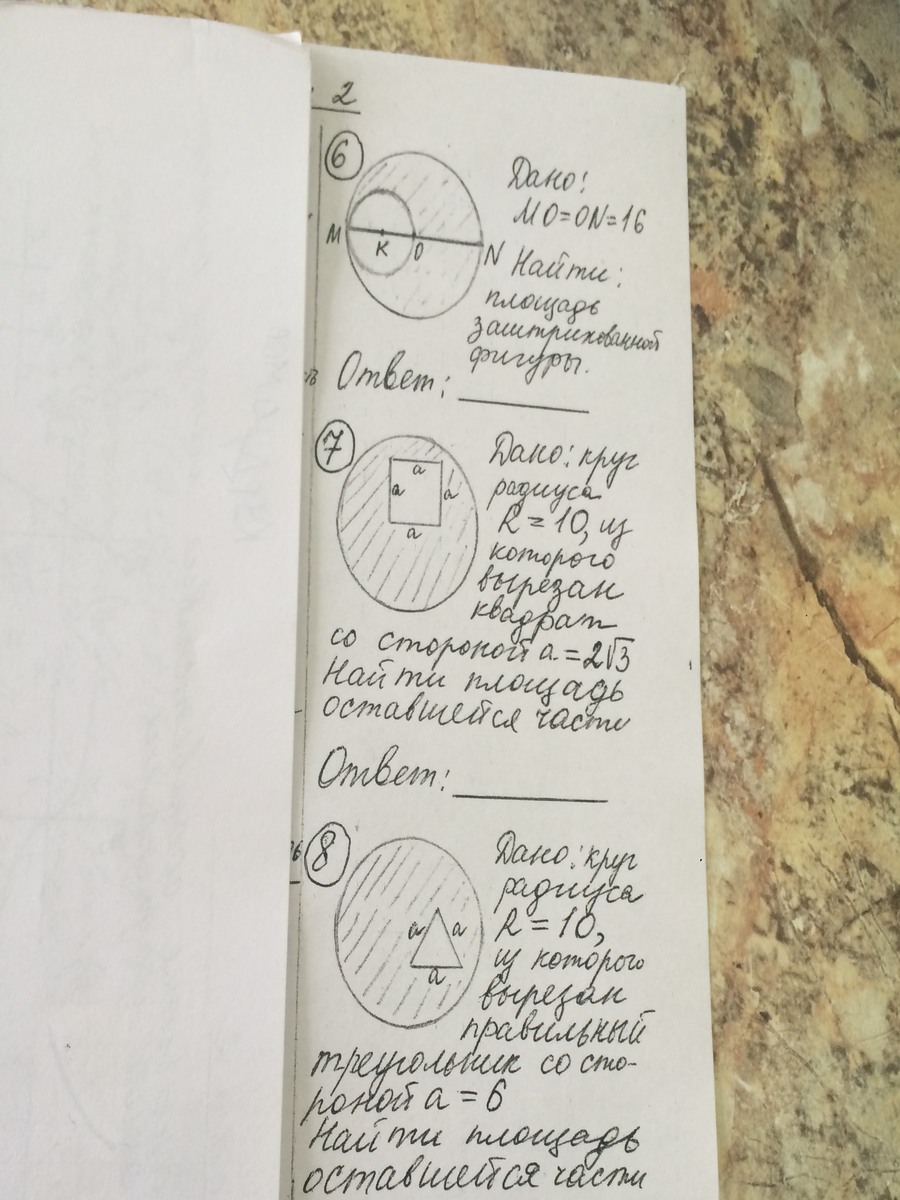 2
6
Дано:
MO=ON=16
M K O N
Найти:
площадь
заштрихованной
фигуры.
Ответ:
7
a
a a
a
Дано: круг
радиуса
R = 10, из
которого
вырезан
квадрат
со стороной a = 2√3
Найти площадь
оставшейся части
Ответ:
8
a a
a
Дано: круг
радиуса
R = 10,
из которого
вырезан
правильный
треугольник со сто-
роной a = 6
Найти площадь
оставшейся части